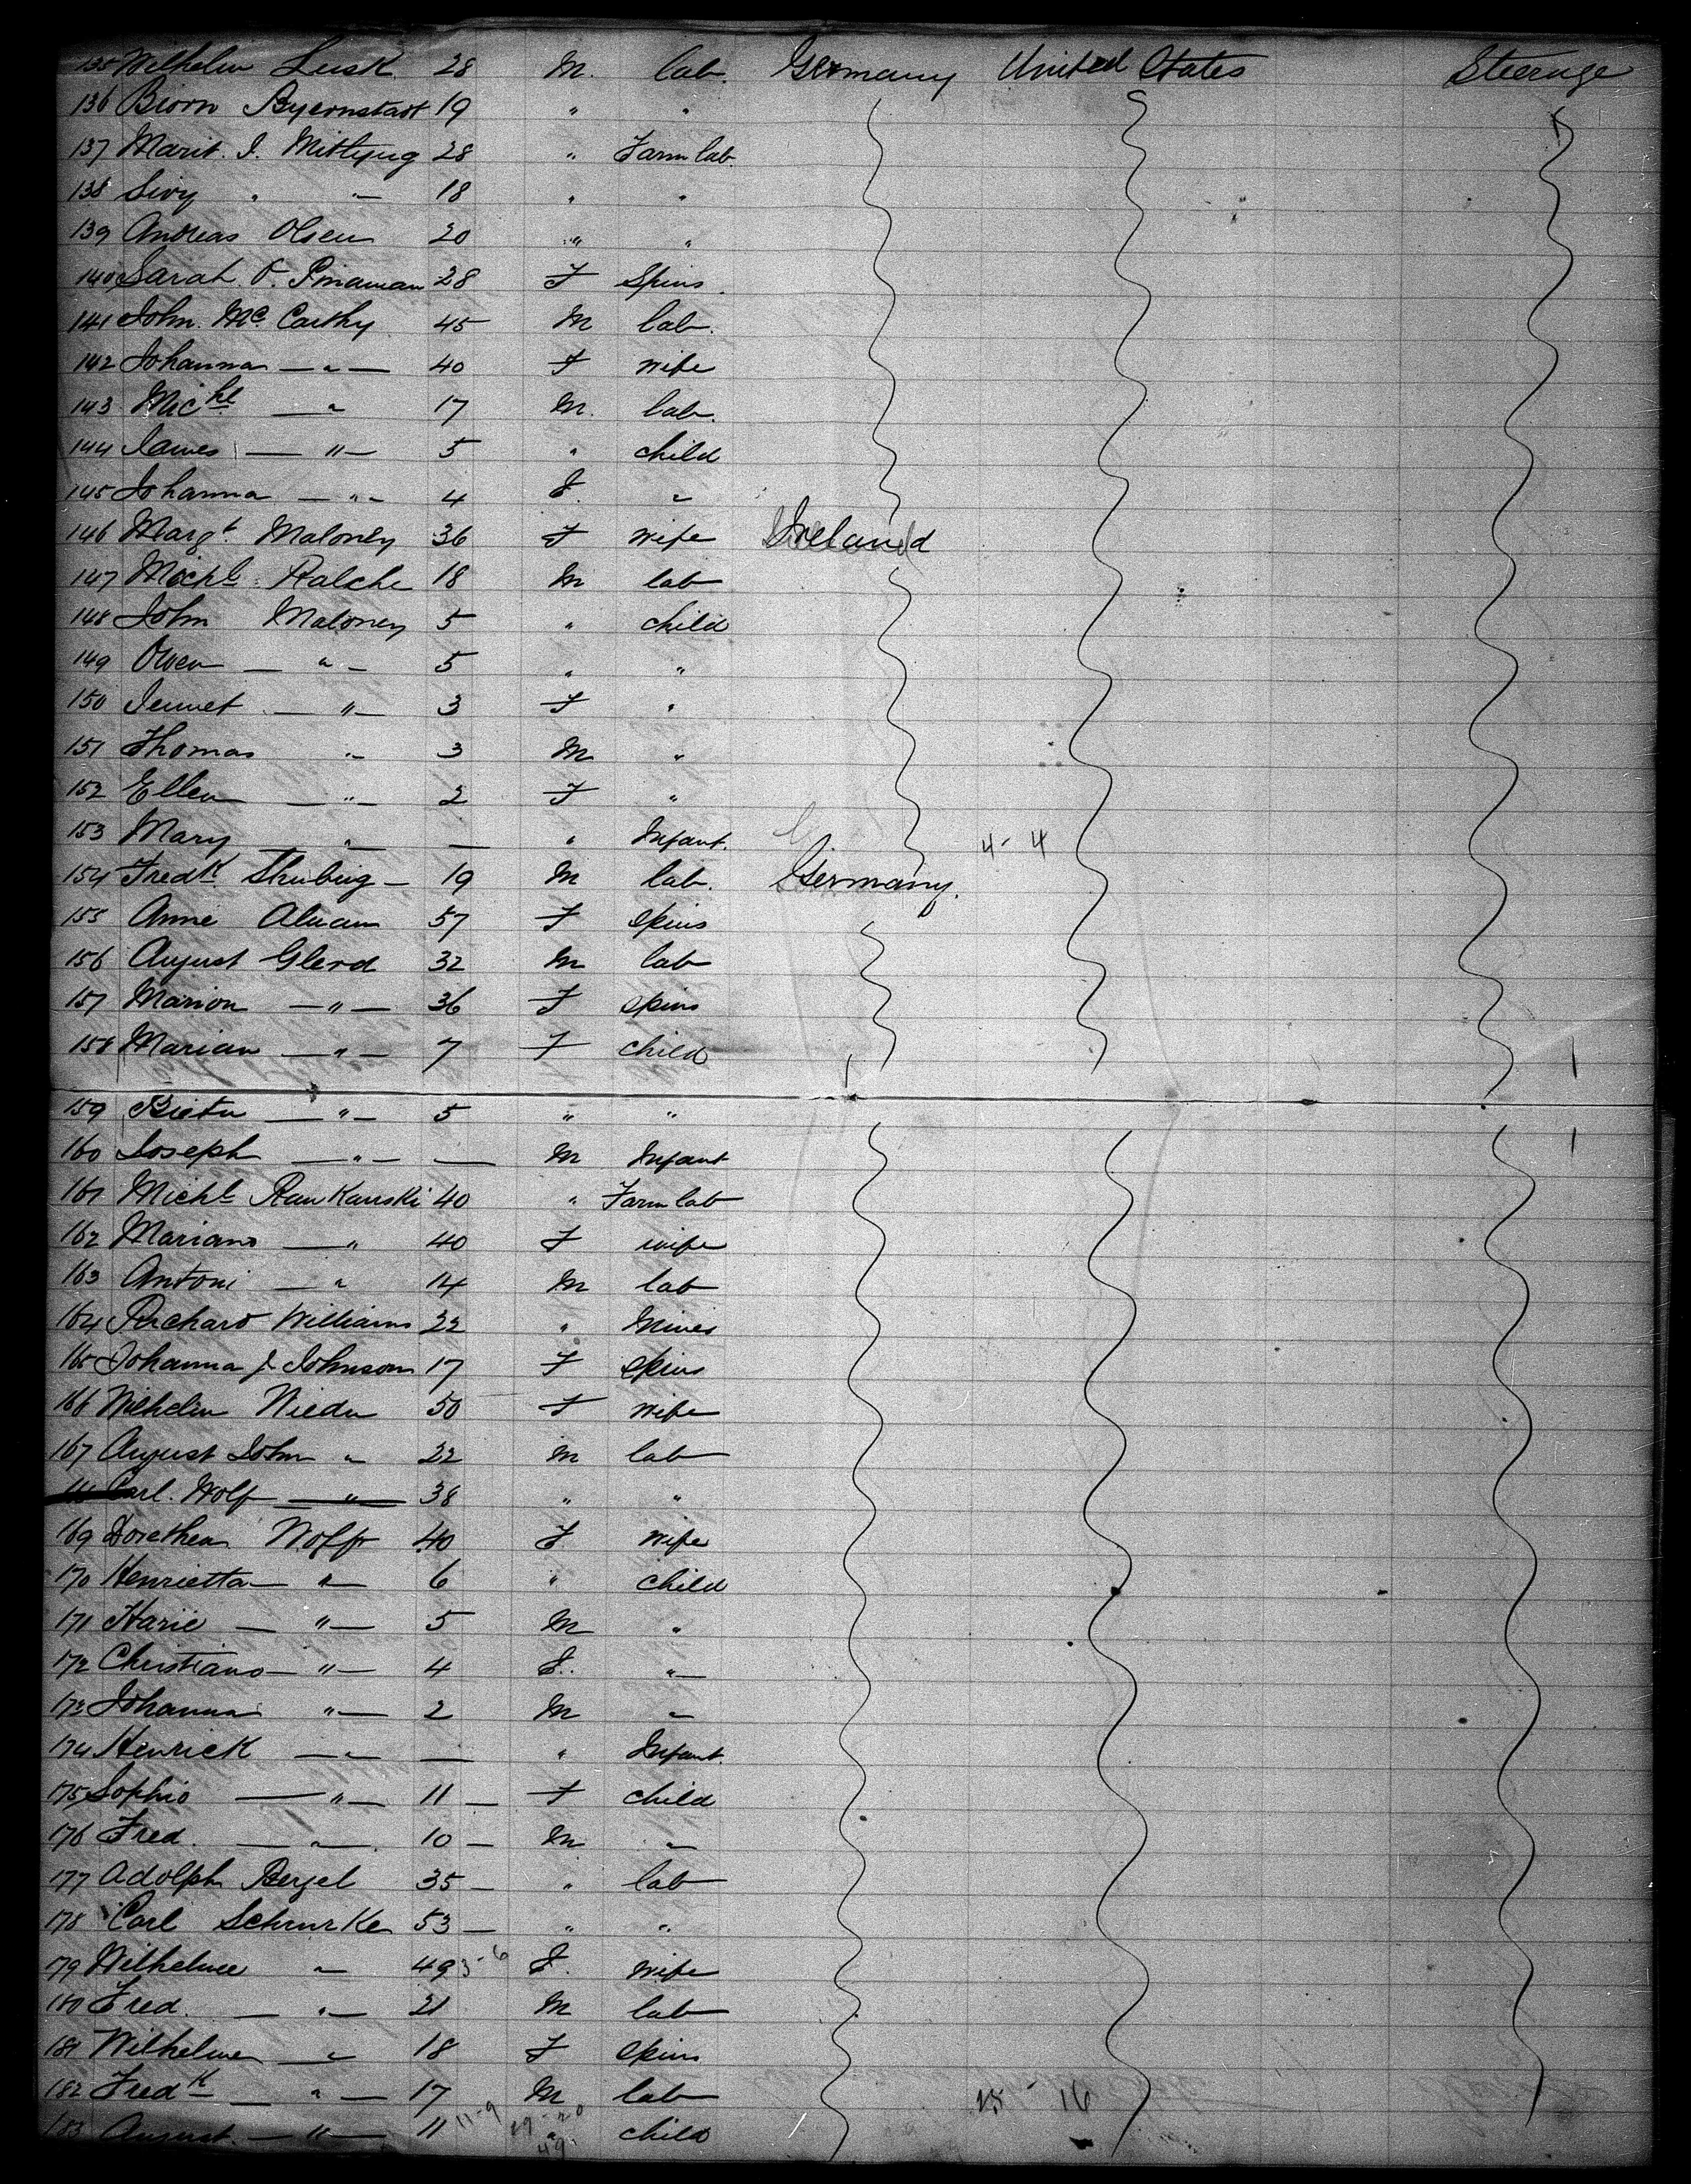 135 Wilhelm Lusk 28 M. lab. Germany United States Steerage
136 Biorn Byernstadt 19 " "
137 Marit. I. Mitlyng 28 " Farm lab.
138 Sivy " — 18 " "
139 Andreas Olsen 20 " "
140 Sarah O. 28 F Spins.
141 John. Mc Carthy 45 M lab.
142 Johanna — " — 40 F wife
143 Michl — " 17 M. lab.
144 James — " — 5 " child
145 Johanna — " — 4 F. "
146 Margt. Maloney 36 F wife Ireland
147 Michl. 18 M lab
148 John Maloney 5 " child
149 Owen — " — 5 " "
150 Jennet — " — 3 F "
151 Thomas " — 3 M "
152 Ellen — " — 2 F "
153 Mary — " — — " Infant. 4 - 4
154 Fredk. Shubing — 19 M lab. Germany.
155 Anne 57 F spins
156 August Glerd 32 M lab
157 Marion — " — 36 F spins
158 Marian — " — 7 F child
159 — " — 5 " "
160 Joseph — " — — M Infant
161 Michl Raukauski 40 " Farm lab
162 Mariano — " 40 F wife
163 Antoni — " 14 M lab
164 Richard Williams 22 " Miner
165 Johanna J. Johnson 17 F spins
166 Wilhelm Niedu 50 F wife
167 August John " 22 M lab
Carl. Wolf — " — 38 " "
169 Dorethea Wolff 40 F wife
170 Henrietta — " — 6 " child
171 Harie — " — 5 M "
172 Christiano — " — 4 F. "
173 Johanna " — 2 M "
174 Henrick — " — — " Infant.
175 Sophio — " — 11 — F child
176 Fred. — " — 10 — M "
177 Adolph Bergel 35 — " lab
178 Carl Schnurke 53 — " "
179 Wilhelmee " 49 3-6 F. wife
180 Fred. — " — 21 M lab
181 Wilhelmen — " 18 F spins
182 Fredk — " — 17 M lab 16
183 August. — " — 11 11-9 19-20 49 " child